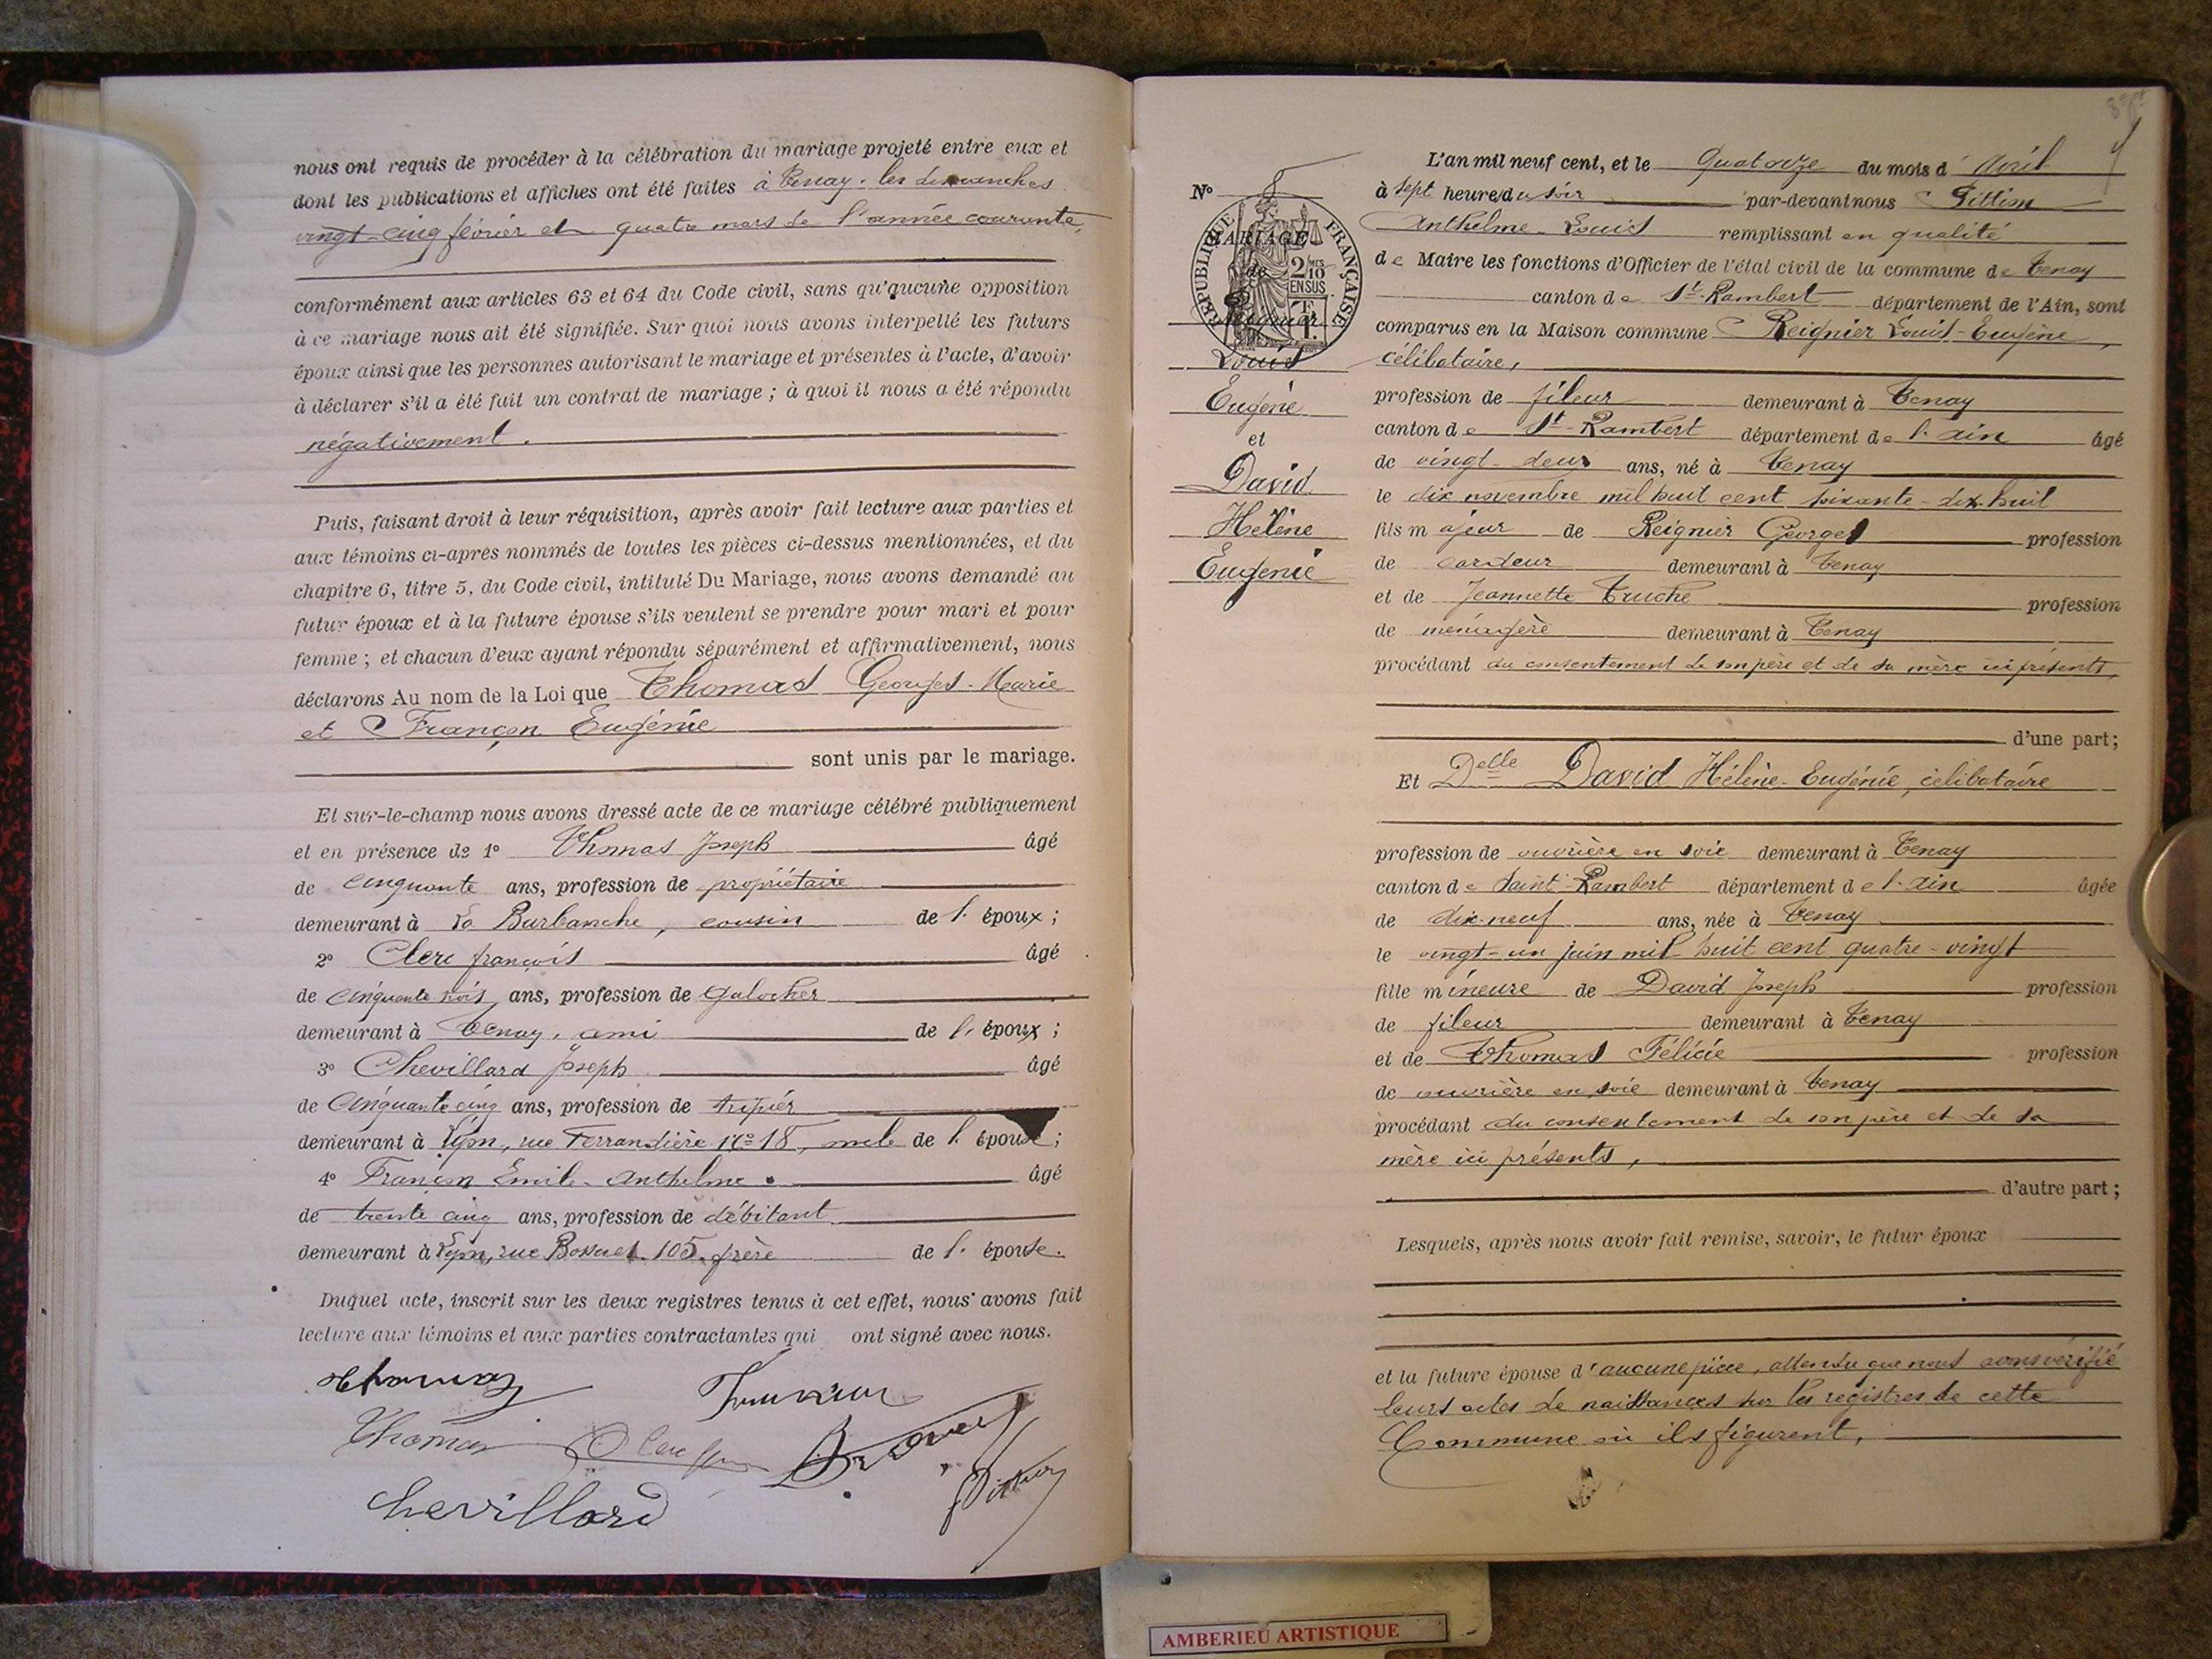 nous ont requis de procéder à la célébration du mariage projeté entre eux et
dont les publications et affiches ont été faites à Tenay. les dimanches
vingt-cinq février et quatre mars de l'année courante,
conformément aux articles 63 et 64 du Code civil, sans qu'aucune opposition
à ce mariage nous ait été signifiée. Sur quoi nous avons interpellé les futurs
époux ainsi que les personnes autorisant le mariage et présentes à l'acte, d'avoir
à déclarer s'il a été fait un contrat de mariage ; à quoi il nous a été répondu
négativement.
Puis, faisant droit à leur réquisition, après avoir fait lecture aux parties et
aux témoins ci-après nommés de toutes les pièces ci-dessus mentionnées, et du
chapitre 6, titre 5, du Code civil, intitulé Du Mariage, nous avons demandé au
futur époux et à la future épouse s'ils veulent se prendre pour mari et pour
femme ; et chacun d'eux ayant répondu séparément et affirmativement, nous
déclarons Au nom de la Loi que Thomas Georges-Marie
et Françon Eugénie
sont unis par le mariage.
Et sur-le-champ nous avons dressé acte de ce mariage célébré publiquement
et en présence de 1° Thomas Joseph âgé
de cinquante ans, profession de propriétaire
demeurant à La Burbanche, cousin de l' époux ;
2° Clerc françois âgé
de cinquante trois ans, profession de galocher
demeurant à Tenay, ami de l' époux ;
3° Chevillard Joseph âgé
de Cinquante cinq ans, profession de tripier
demeurant à Lyon, rue Ferrandière No 18, oncle de l' épouse ;
4° Françon Emile-Anthelme âgé
de trente cinq ans, profession de débitant
demeurant à Lyon, rue Bossuet 105. frère de l' épouse.
Duquel acte, inscrit sur les deux registres tenus à cet effet, nous avons fait
lecture aux témoins et aux parties contractantes qui ont signé avec nous.
Thomas
Thomas
Chevillard
N°
RÉPUBLIQUE FRANÇAISE
2 10 EN SUS
1 F
MARIAGE
de
Reignier
Louis
Eugène
et
David
Hélène
Eugénie
L'an mil neuf cent, et le Quatorze du mois d' Avril
à sept heures du soir par-devant nous Pittion
Anthelme-Louis remplissant en qualité
de Maire les fonctions d'Officier de l'état civil de la commune de Tenay
canton de St-Rambert département de l'Ain, sont
comparus en la Maison commune Reignier Louis-Eugène,
célibataire,
profession de fileur demeurant à Tenay
canton de St-Rambert département de l'Ain âgé
de vingt-deux ans, né à Tenay
le dix novembre mil huit cent soixante-dix-huit
fils majeur de Reignier Georges profession
de cardeur demeurant à Tenay
et de Jeannette Truche profession
de ménagère demeurant à Tenay
procédant du consentement de son père et de sa mère ici présents,
d'une part ;
Et Delle David Hélène-Eugénie, célibataire
profession de ouvrière en soie demeurant à Tenay
canton de Saint-Rambert département de l'Ain âgée
de dix-neuf ans, née à Tenay
le vingt-un juin mil huit cent quatre-vingt
fille mineure de David Joseph profession
de fileur demeurant à Tenay
et de Thomas Félicie profession
de ouvrière en soie demeurant à Tenay
procédant du consentement de son père et de sa
mère ici présents,
d'autre part ;
Lesquels, après nous avoir fait remise, savoir, le futur époux
et la future épouse d'aucune pièce, attendu que nous avons vérifié
leurs actes de naissances sur les registres de cette
Commune où ils figurent,
AMBERIEU ARTISTIQUE